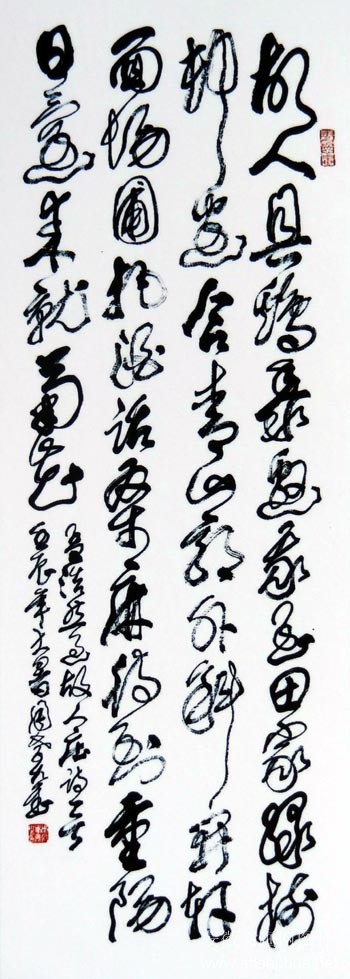 故人具鷄黍邀我至田家綠樹
村邊合青山郭外斜開軒
面場圃把酒話桑麻待到重陽
日還來就菊花
孟浩然過故人莊詩一首
壬辰年大暑周